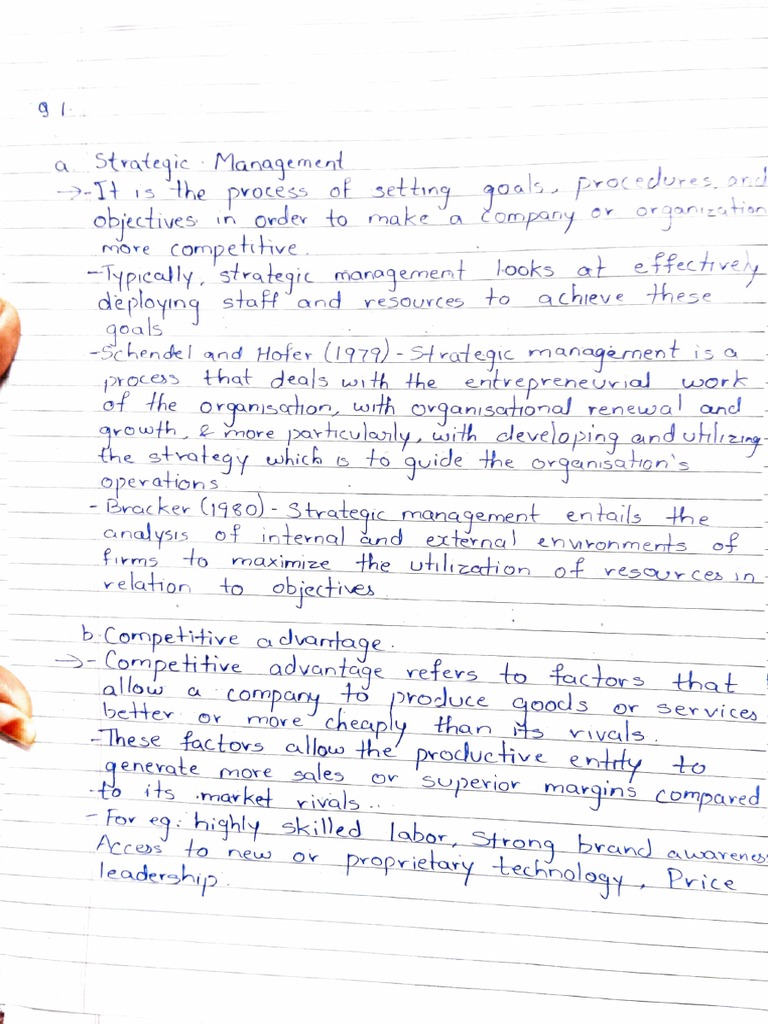 Q 1.
a. Strategic Management
→ - It is the process of setting goals, procedures, and
objectives in order to make a company or organization
more competitive.
- Typically, strategic management looks at effectively
deploying staff and resources to achieve these
goals
- Schendel and Hofer (1979) - Strategic management is a
process that deals with the entrepreneurial work
of the organisation, with organisational renewal and
growth, & more particularly, with developing and utilizing
the strategy which is to guide the organisation's
operations.
- Bracker (1980) - Strategic management entails the
analysis of internal and external environments of
firms to maximize the utilization of resources in
relation to objectives.
b. Competitive advantage.
→ - Competitive advantage refers to factors that
allow a company to produce goods or services
better or more cheaply than its rivals.
- These factors allow the productive entity to
generate more sales or superior margins compared
to its market rivals..
- For eg: highly skilled labor, Strong brand awareness
Access to new or proprietary technology, Price
leadership.